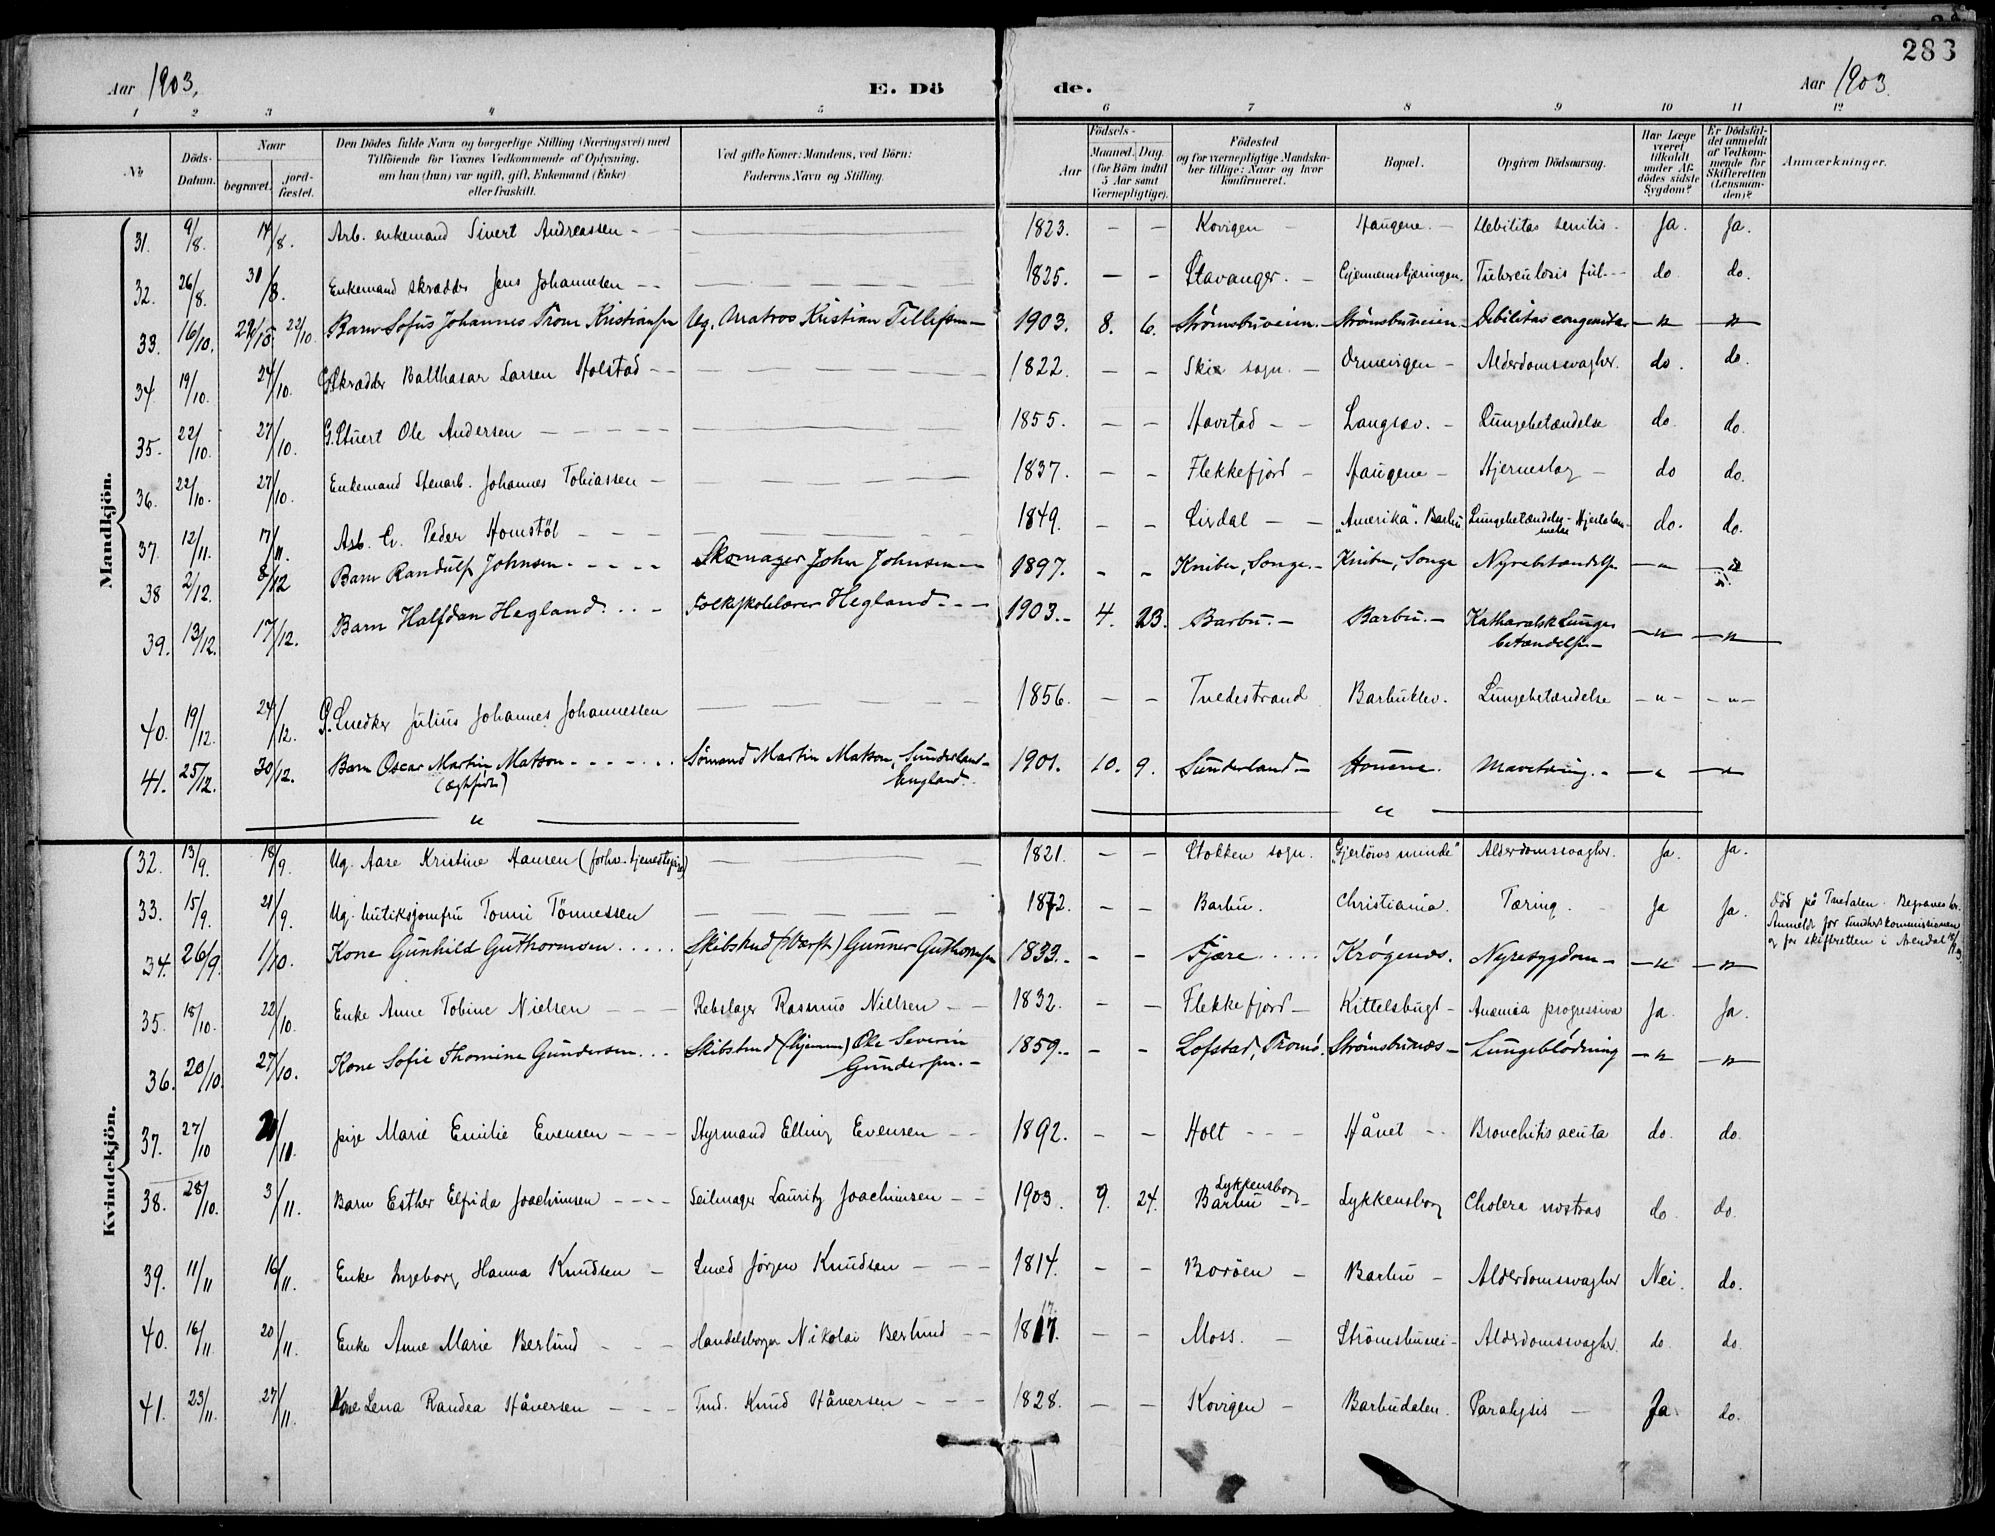 283
Aar 1903. E. Dö de. Aar 1903.
1 2 3 4 5 6 7 8 9 10 11 12
№ Döds-Datum. Naar begravet. jord-fæstet. Den Dödes fulde Navn og borgerlige Stilling (Næringsvei) med Tilföiende for Voxnes Vedkommende af Oplysning, om han (hun) var ugift, gift, Enkemand (Enke) eller fraskilt. Ved gifte Koner: Mandens, ved Börn: Faderens Navn og Stilling. Födsels- Aar Maaned. Dag. (for Börn indtil 5 Aar samt Værnepligtige). Födested og for værnepligtige Mandskaber tillige: Naar og hvor konfirmeret. Bopæl. Opgiven Dödsaarsag. Har Læge været tilkaldt under Afdödes sidste Sygdom? Er Dödsfaldet anmeldt af Vedkommende for Skifteretten (Lensmanden)? Anmærkninger.
Mandkjön.
31. 9/8. 17/8. Arb. enkemand Sivert Andreassen - - 1823. - - Kovigen - Haugene. - Debilitas senilis. Ja. Ja.
32. 26/8. 31/8. Enkemand skrædder Jens Johannesen - - 1825. - - Stavanger. - Gjennemskjæringen. Tuberculosis pul. - - do do.
33. 16/10. 22/10. Barn Sofus Johannes Trom Kristiansen Ug. Matros Kristian Tellefsen - 1903. 8. 6. Strømsbuveien. - Strømsbuveien - Debilitas congenita - " - - " -
34. 19/10. 24/10. G. Skrædder Balthasar Larsen Holstad - - 1822. - - Skie sogn. - Ormevigen - Alderdomssvaghed. do. do.
35. 22/10. 27/10. G. Stuert Ole Andersen - - - - - 1855. - - Havstad - - Langsæv. - Lungebetændelse do. do.
36. 22/10. 27/10. Enkemand Stenarb. Johannes Tobiassen - 1837. - - Flekkefjord - Haugene - Hjerneslag - do do.
37. 12/11. 17/11. Arb. Peder Homstöl - - - 1849. - - Lisdal - - "Amerika". Barbu Lungebetændelse - do. do.
38 2/12. 8/12 Barn Randulf Johnsen. - - - - - Skomager John Johnsen - 1897. - - Kniben, Songe. - Kniben, Songe Nyrebetændelse - " - - " -
39. 13/12. 17/12. Barn Halfdan Hegland. . . - Folkeskolelærer Hegland - - - 1903. - 4. 23. Barbu. - Barbu. - Katharalsk Lunge-
betændelse - - " - - " -
40. 19/12. 24/12. G. Snedker Julius Johannes Johannessen 1856. - - Tvedestrand Barbuklev. Lungebetændelse - " - - " -
41. 25/12. 30/12. Barn Oscar Martin Matson - - - - . . . Sømand Martin Matson, Sunderland - 1901. 10. 9. Sunderland - Houene. Mavetæring. - - " - - " -
(ægtefødt) England.
" "
Kvindekjön.
32. 13/9. 18/9. Ug. Aase Kristine Hansen (forhv. tjenestepige) 1821. - - Stokken sogn. "Gjertöws minde" Alderdomssvaghed. Ja. Ja.
33. 15/9. 21/9. Ug. butiksjomfru Tomi Tönnessen 1872. - - Barbu. Christiania. Tæring. - Ja Ja. Död på Tvedalen. Begraves
Anmeldt for
og for skifteretten i Arendal
34. 26/9. 1/10. Kone Gunhild Guthormsen . . . . . Skibstmd (Værft) Gunner Guthormsen 1833. - - - Fjære . . . . . Krøgenæs. Nyresygdom - - " - - " -
35. 18/10. 22/10. Enke Anne Tobine Nielsen - - - Rebslager Rasmus Nielsen - - 1832. - - Flekkefjord - Kittelsbugt - Anæmia progressiva Ja. Ja.
36. 20/10. 27/10. Kone Sofie Thomine Gundersen . . . Skibstmd (hjemme) Ole Severin 1859. - - - Lofstad, Tromö. Strømsbunæs - Lungeblödning - " - - " -
Gundersen. -
37. 27/10 /11 pige Marie Emilie Evensen - - - Styrmand Elling Evensen - - 1892. - - Holt - - - Hånet - - Bronchitis acuta do. do.
38. 28/10. 3/11. Barn Esther Elfida Joachimsen - - - - Seilmager Lauritz Joachimsen - - 1903. 9. 24. Lykkensborg
Barbu - - Lykkensborg Cholera nostras do. do.
39. 11/11 16/11. Enke Ingeborg Hanna Knudsen - Smed Jörgen Knudsen - - - 1814. - - Boröen - Barbu - Alderdomssvaghed Nei. do.
40. 16/11 20/11. Enke Anne Marie Berlund - - - Handelsborger Nikolai Berlund - - 1817. 17. - - Moss. - Strömsbuvei - Alderdomssvaghed. do. do.
41. 23/11. 27/11. Kone Lena Randea Håversen - - - Tmd. Knud Håversen - - - 1828. - - Kovigen - Barbudalen. Paralysis - Ja do.